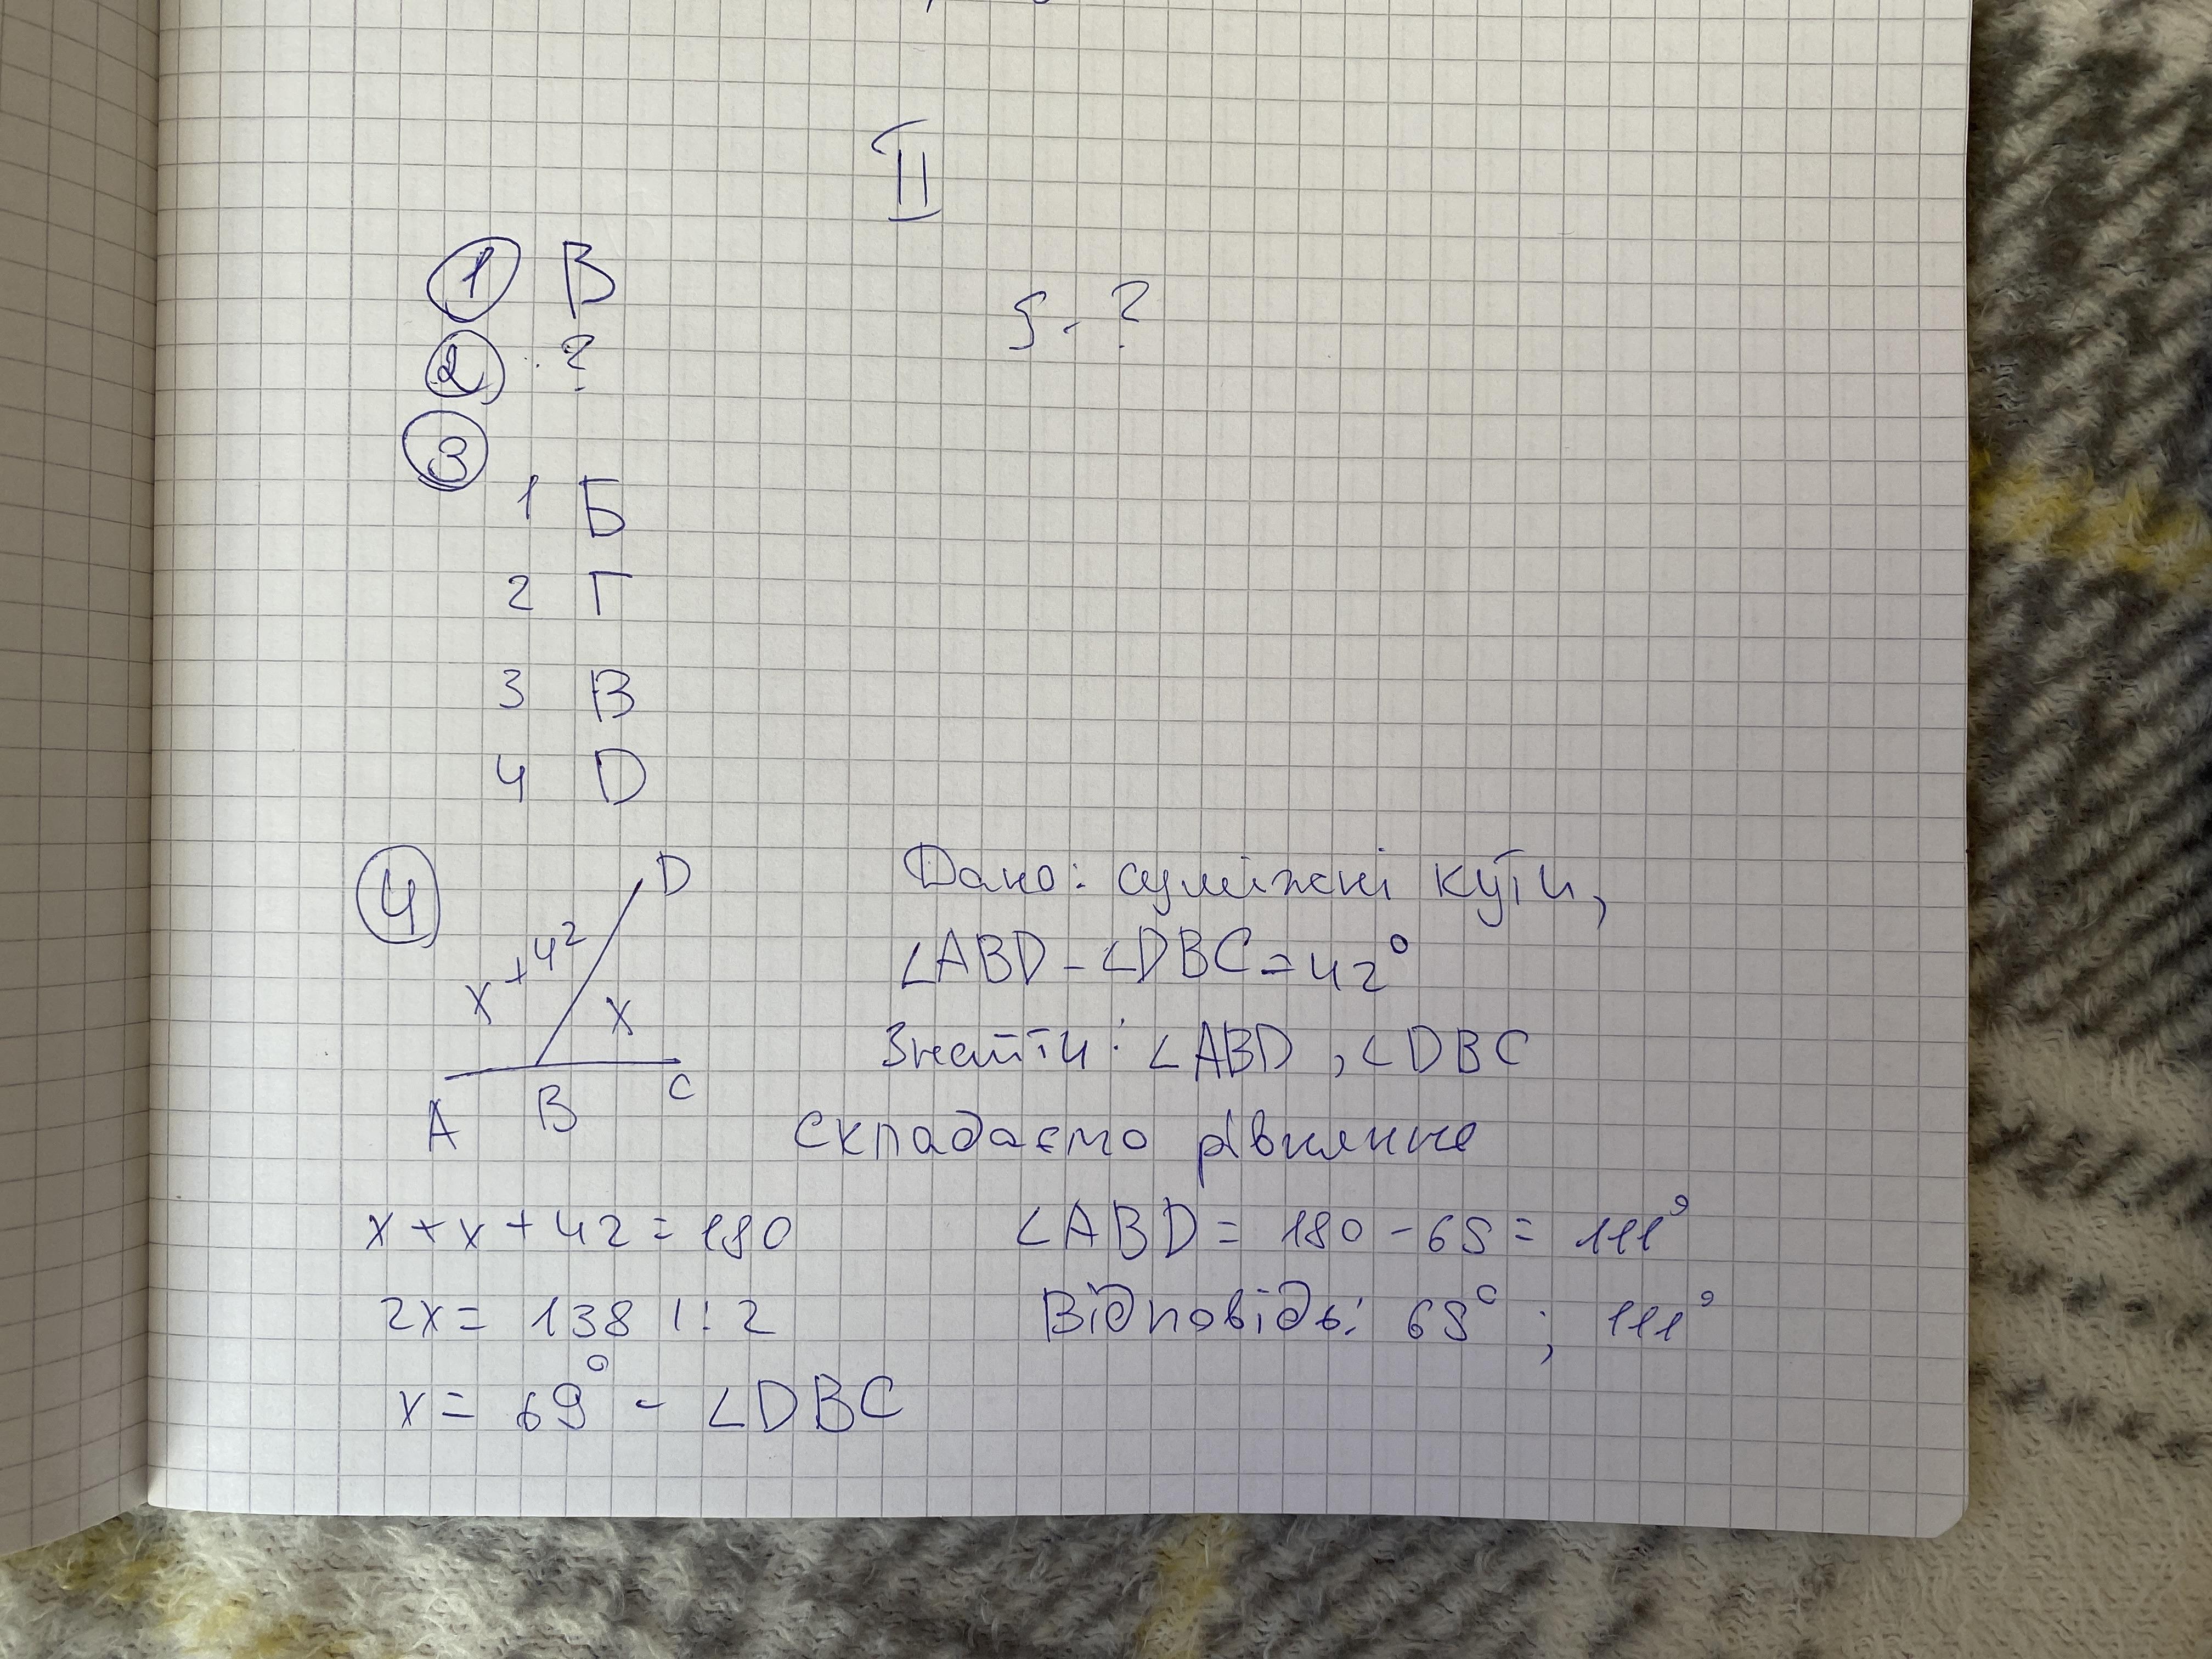 II
1 В
5. ?
2 ?
3
1 Б
2 Г
3 В
4 D
4
D
x + 42
x
A B C
Дано: суміжні кути,
∠ABD - ∠DBC = 42°
Знайти: ∠ABD, ∠DBC
Складаємо рівняння
x + x + 42 = 180
∠ABD = 180 - 69 = 111°
2x = 138 |: 2
Відповідь: 69°; 111°
x = 69° - ∠DBC